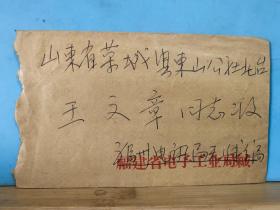 山东省荣城县東山公社北台
王文章同志收
福建省电子工业局缄